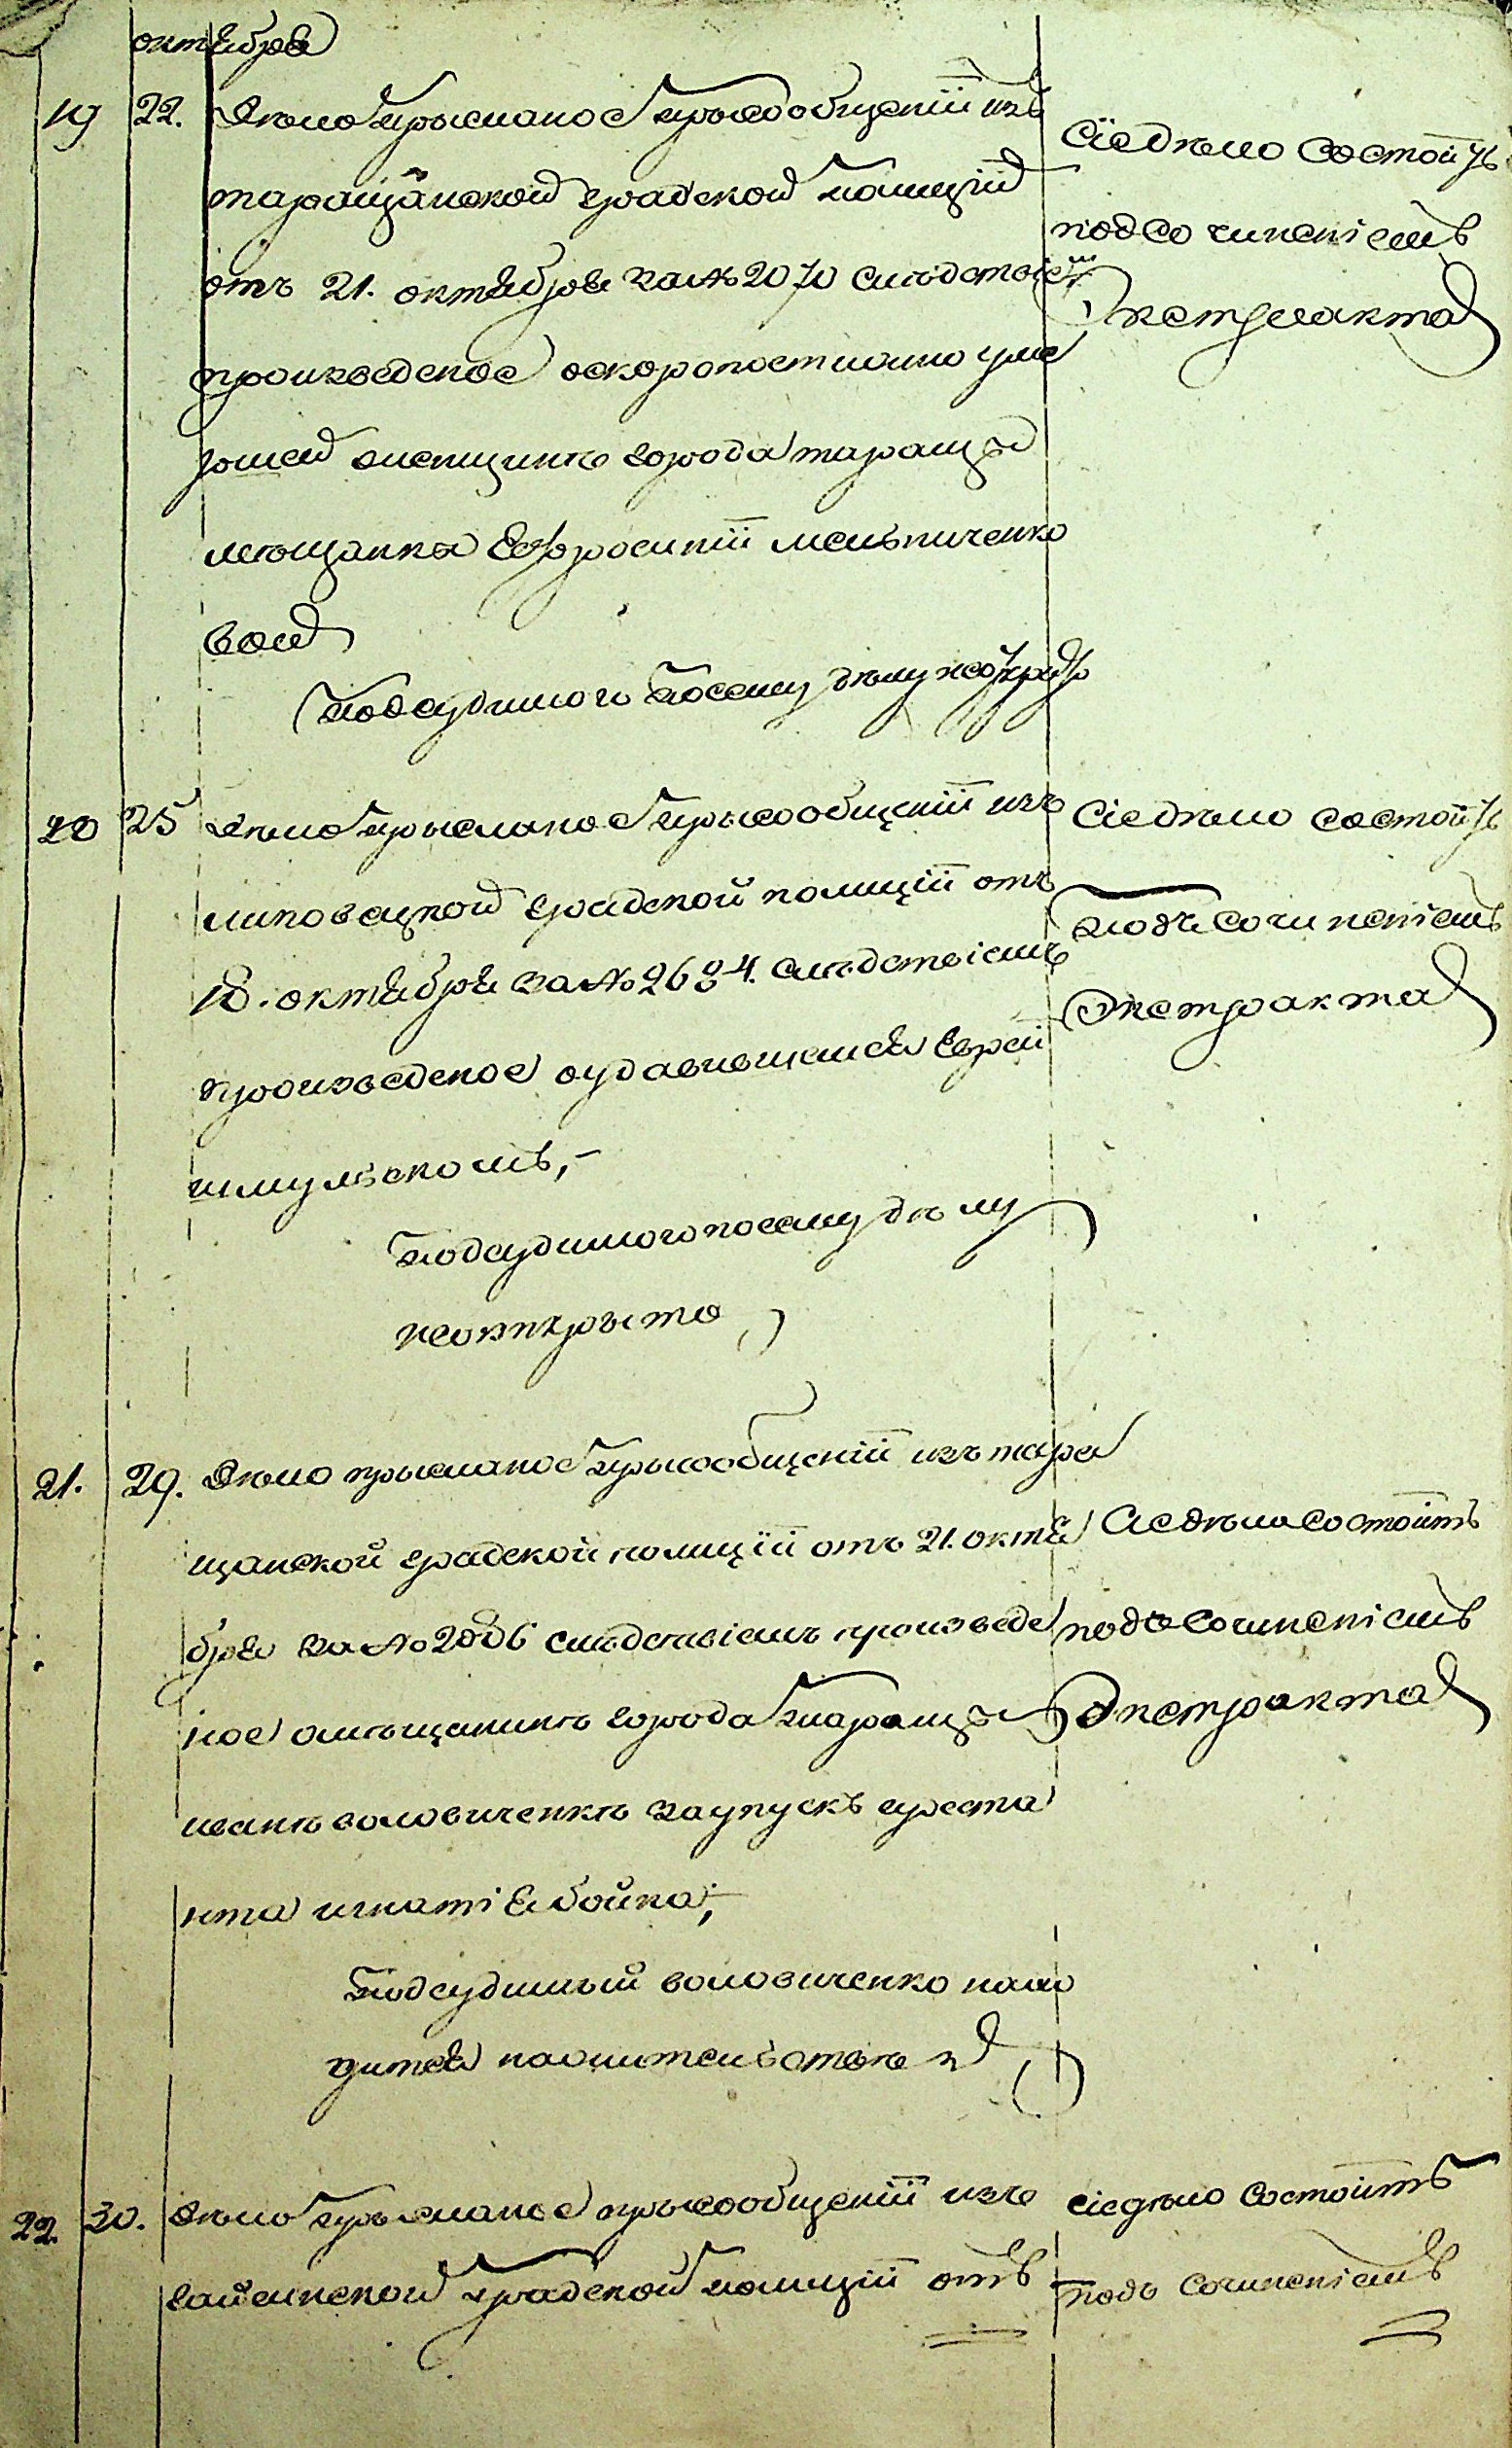 октября
19 22. Дѣло присланое присообщеніи изъ
таращанской градской полиціи
отъ 21. октября за № 2070 слѣдствіем
произведеное оскоропостижно уме
ршей женщинѣ города таращи
мѣщанки Ефросиніи мельниченко
вой
Подсудимого посему дѣлу неоткрыто
Сіе дѣло состоитъ
под сочиненіемъ
Экстракта
20 25 Дѣло присланое присообщеніи изъ
липовецкой градской полиціи отъ
18. октября за № 2634. слѣдствіемъ
произведеное оудавившемся Еврей
шмульскомъ,-
подсудимого посему дѣлу
неоткрыто
Сіе дѣло состоитъ
подъ сочиненіемъ
Экстракта
21. 29. Дѣло присланое присообщеніи изъ тара
щанской градской полиціи отъ 21. октя
бря за № 2086 слѣдствіемъ произведе
ное омѣщанинѣ города таращи
иванѣ воловиченкѣ заупускъ ареста
нта игнатія бойка;
Подсудимый воловиченко нахо
дится нажительствѣ
Сіе дѣло состоитъ
подъ сочиненіемъ
Экстракта
22. 30. Дѣло присланое присообщеніи изъ
градской полиціи отъ
сіе дѣло состоитъ
подъ сочиненіемъ